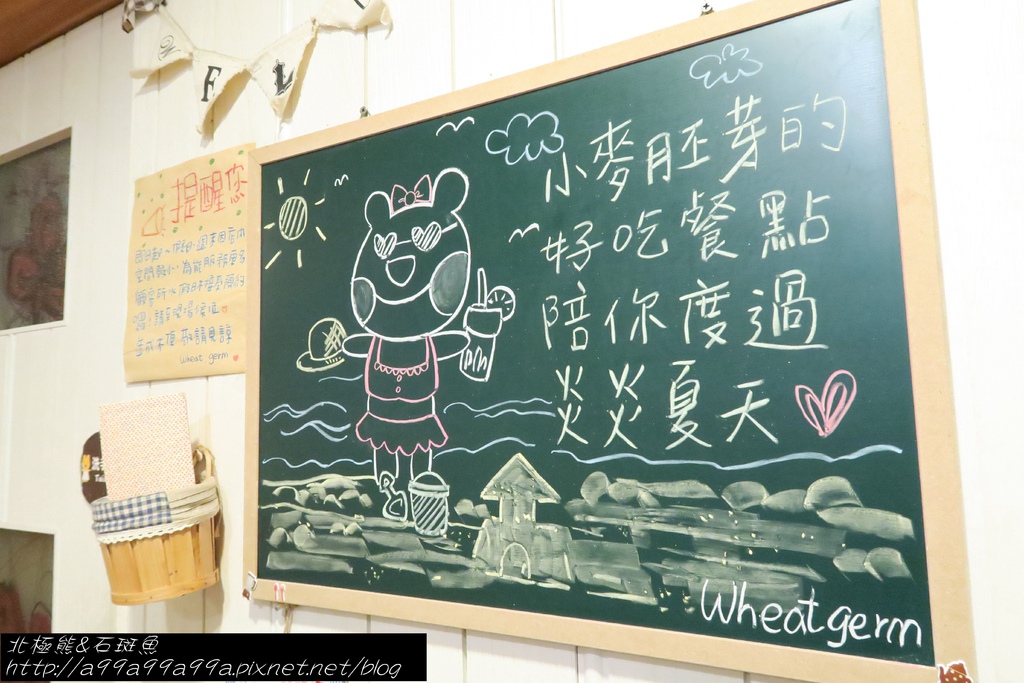 F L
提醒您
小麥胚芽的
好吃餐點
陪你度過
炎炎夏天
Wheatgerm
造成不便 敬請見諒
wheat germ
北極熊&石斑魚
http://a99a99a99a.pixnet.net/blog